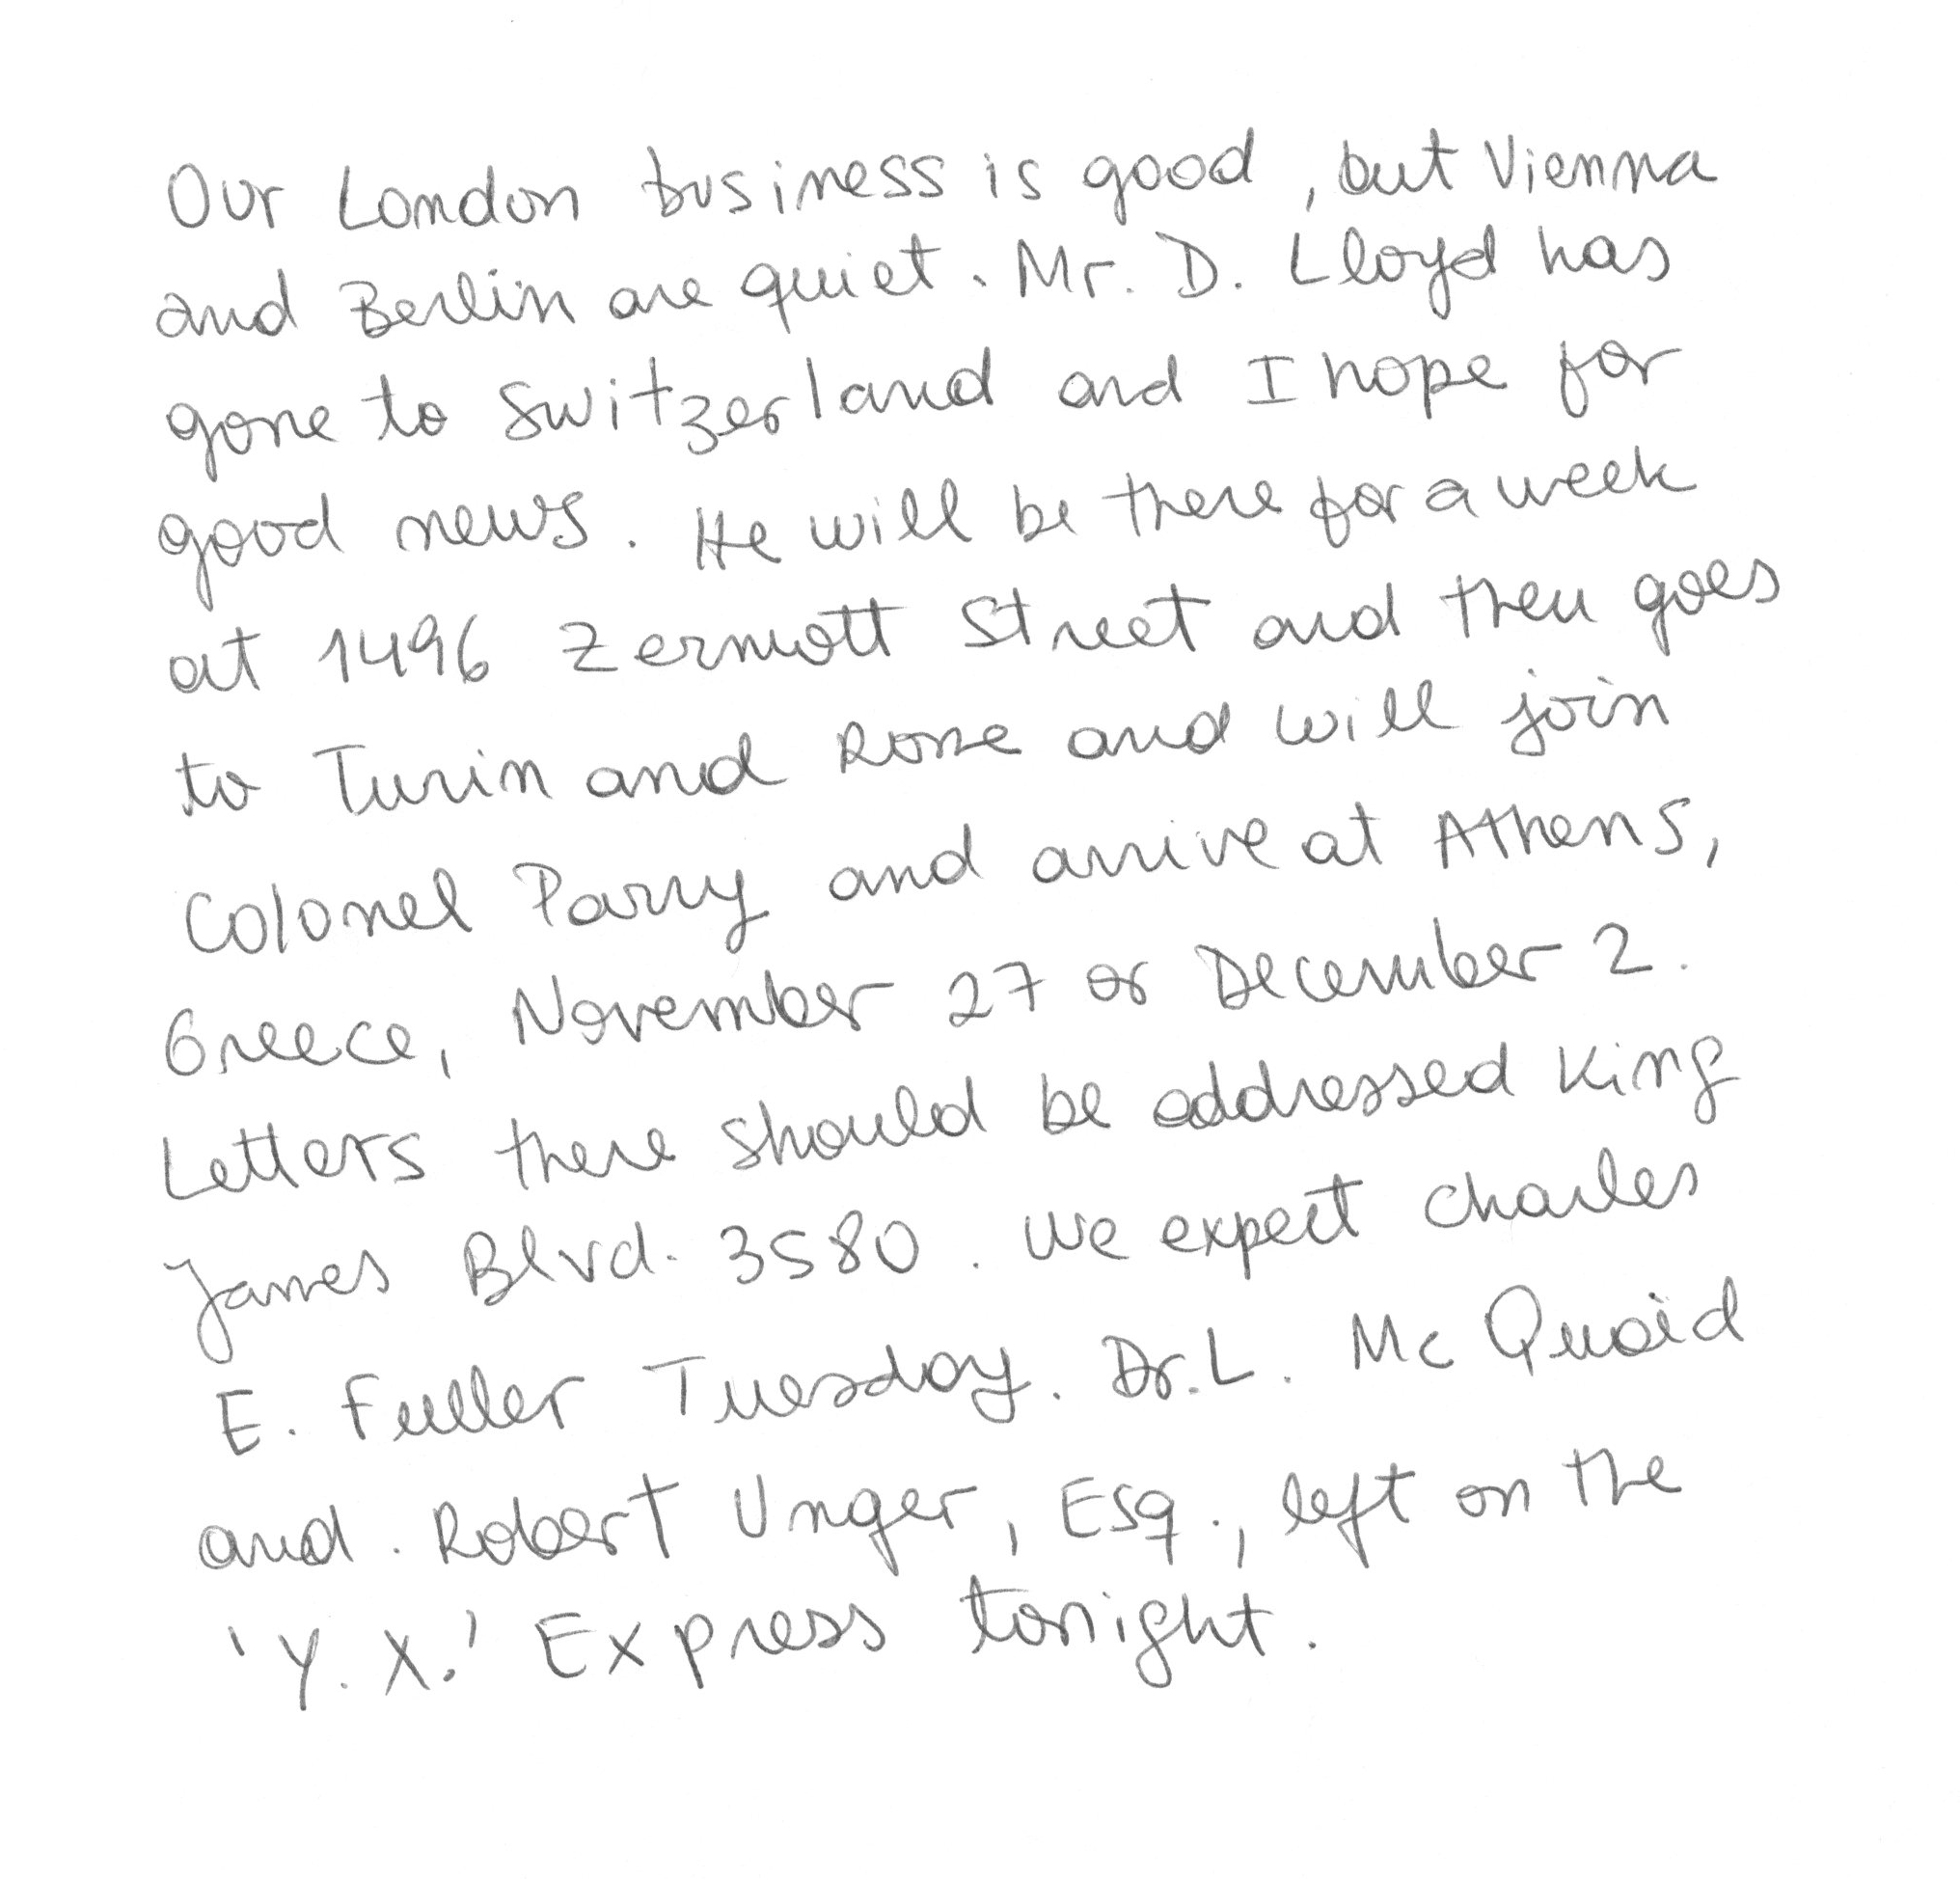 Our London business is good, but Vienna
and Berlin are quiet. Mr. D. Lloyd has
gone to Switzerland and I hope for
good news. He will be there for a week
at 1496 Zermott Street and then goes
to Turin and Rome and will join
Colonel Parry and arrive at Athens,
Greece, November 27 or December 2.
Letters there should be addressed King
James Blvd. 3580. We expect Charles
E. Fuller Tuesday. Dr. L. Mc Quaid
and. Robert Unger, Esq., left on the
'Y. X.' Express tonight.